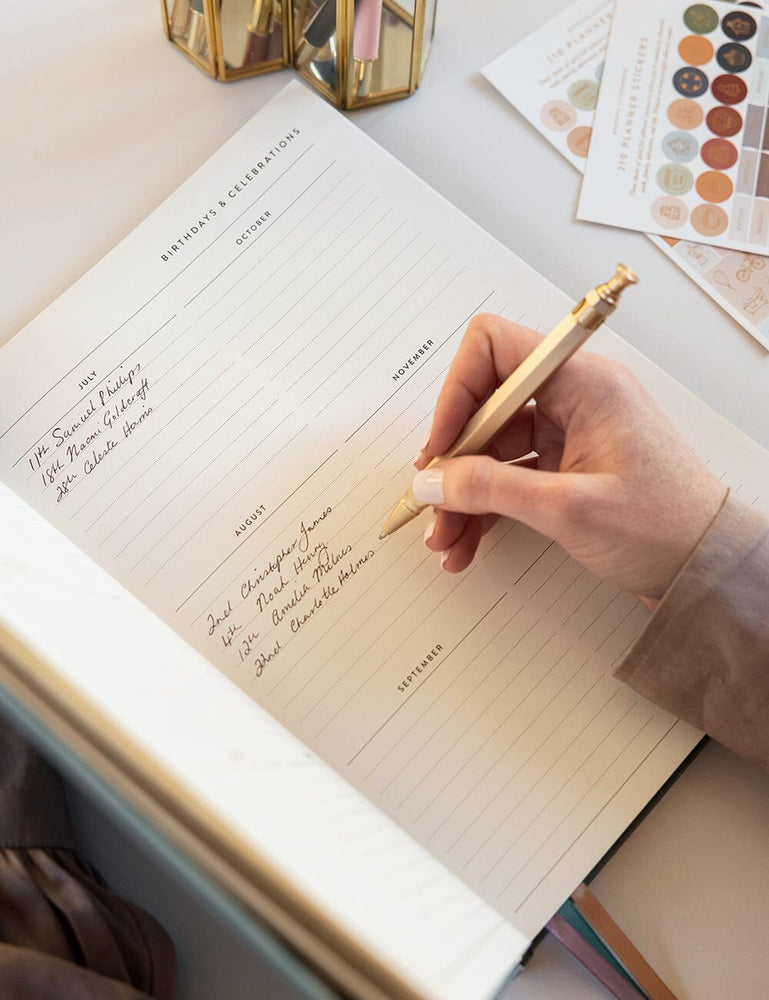 BIRTHDAYS & CELEBRATIONS
JULY
11th Samuel Phillips
18th Naomi Goldcraft
28th Celeste Harris
OCTOBER
AUGUST
2nd Christopher James
4th Noah Henry
12th Amelia Milnes
22nd Charlotte Holmes
NOVEMBER
SEPTEMBER
210 PLANNER
210 PLANNER STICKERS